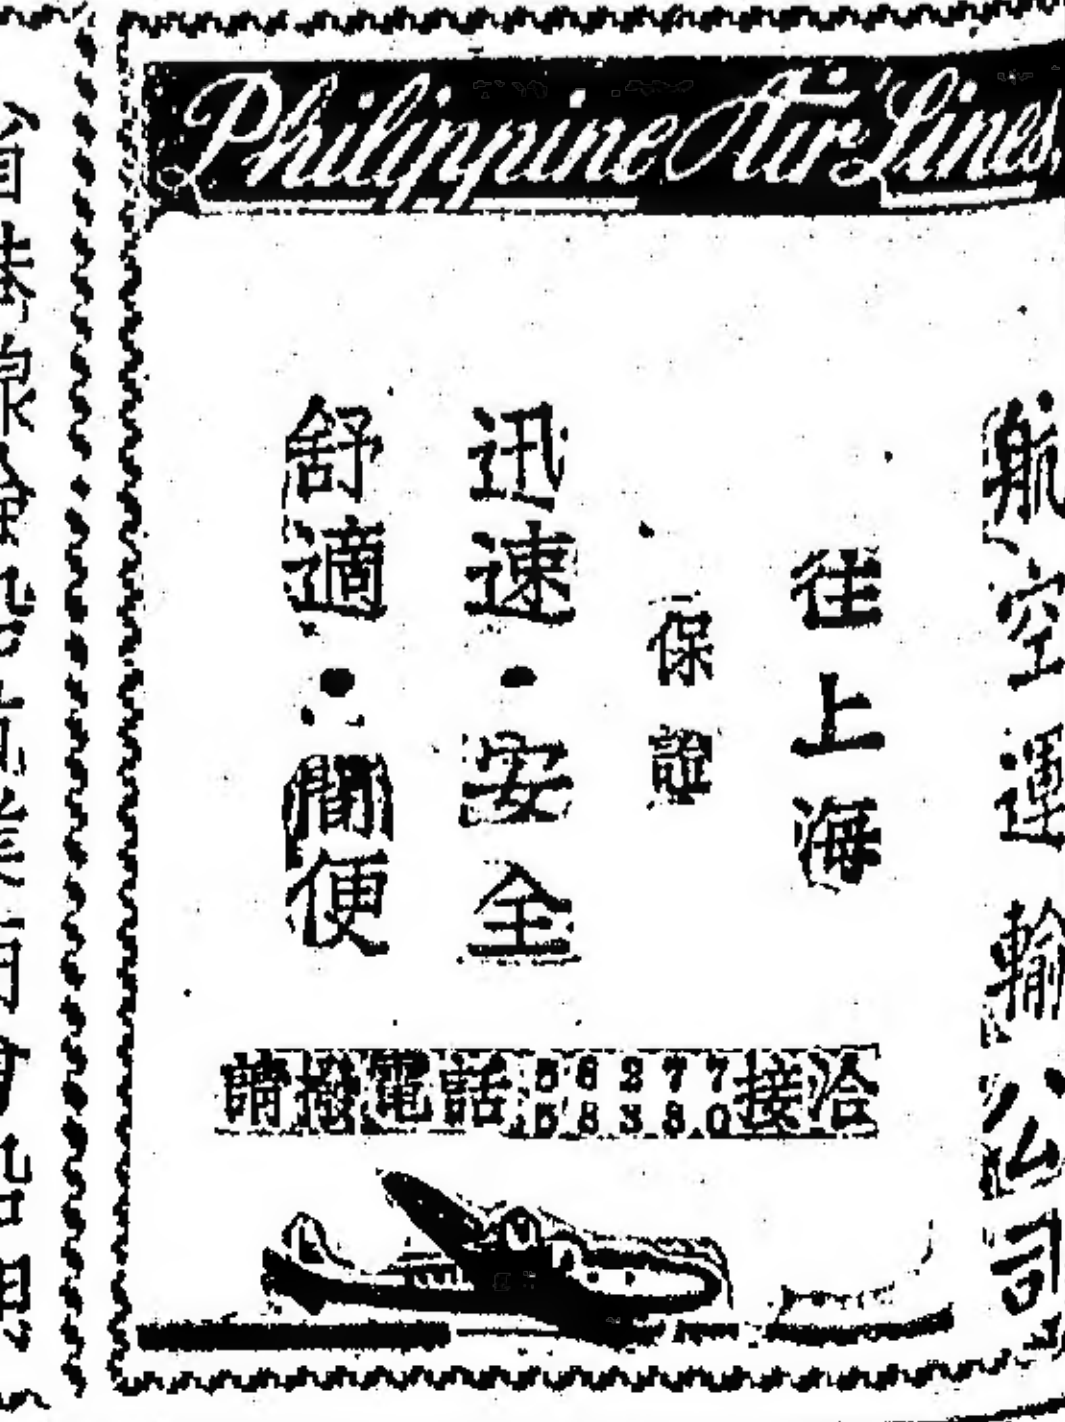 Philippine Air Lines
航空運輸公司
往上海
保證
迅速·安全
舒適·簡便
請撥電話 56277 58380 接洽